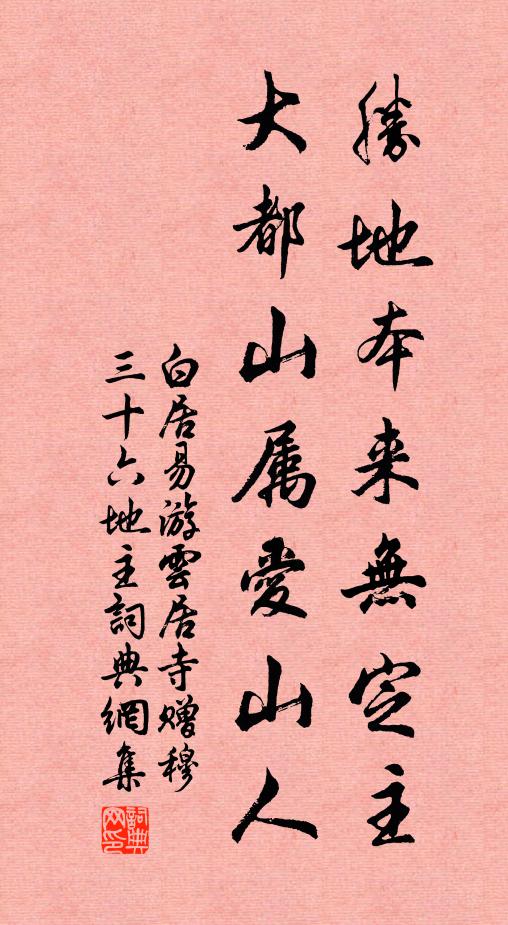 勝地本来無定主
大都山属愛山人
白居易游雲居寺贈穆
三十六地主詞典網集
詞典网印